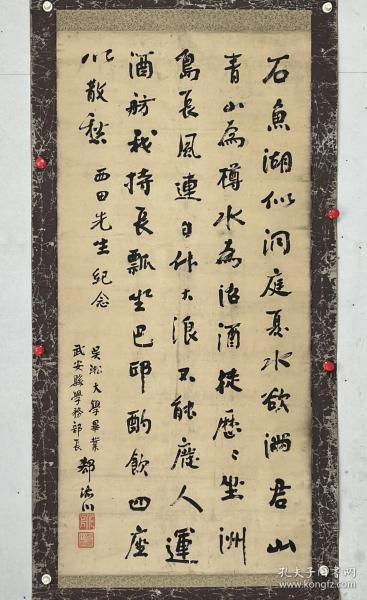 石魚湖似洞庭夏水欲滿君山
青山為樽水為沼酒徒歷〻坐洲
島長風連日作大浪不能廢人運
酒舫我持長瓢坐巴邱酌飲四座
以散愁 西田先生紀念
吳淞大學畢業
武安縣學務部長 鄭
孔夫子旧书网
www.kongfz.com